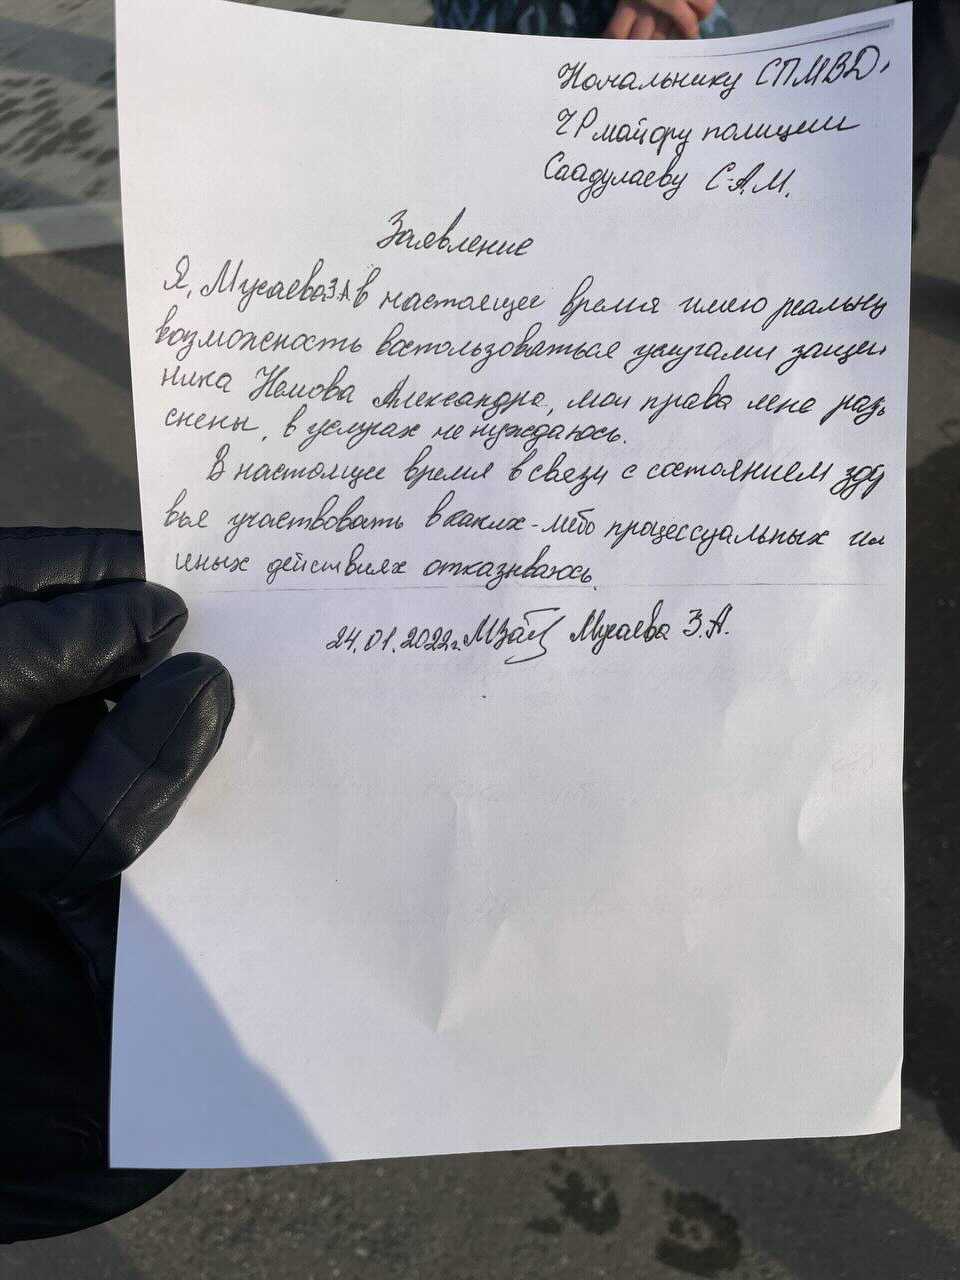 Начальнику СПМВД
ЧР майору полиции
Саадулаеву С-А.М.
Заявление
Я, Мусаева З.А в настоящее время имею реальну
возможность воспользоваться услугами защит
ника Немова Александра, мои права мне разъ
снены, в услугах не нуждаюсь.
В настоящее время в связи с состоянием здо
вья участвовать в каких-либо процессуальных ил
иных действиях отказываюсь.
24.01.2022г. Мусаева З.А.